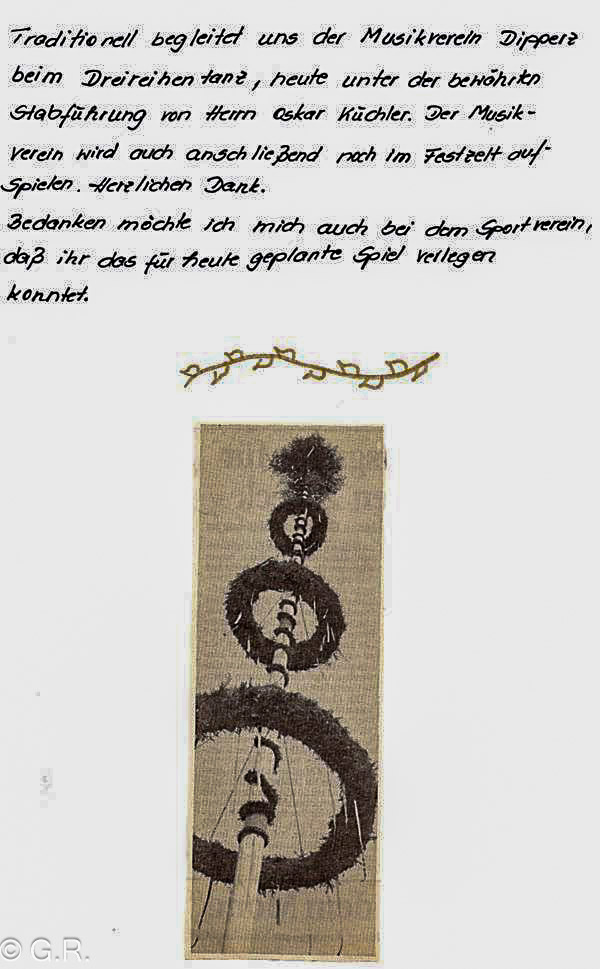 Traditionell begleitet uns der Musikverein Dipperz
beim Dreireihentanz, heute unter der bewährten
Stabführung von Herrn Oskar Küchler. Der Musik-
verein wird auch anschließend noch im Festzelt auf-
spielen. Herzlichen Dank.
Bedanken möchte ich mich auch bei dem Sportverein,
daß ihr das für heute geplante Spiel verlegen
konntet.
© G.R.